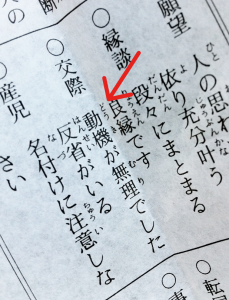 ○願望
人の思わ
依り充分叶う
○縁談
段々にまとまる
良縁です
○交際
動機が無理でした
反省がいる
○産児
名付けに注意しな
さい